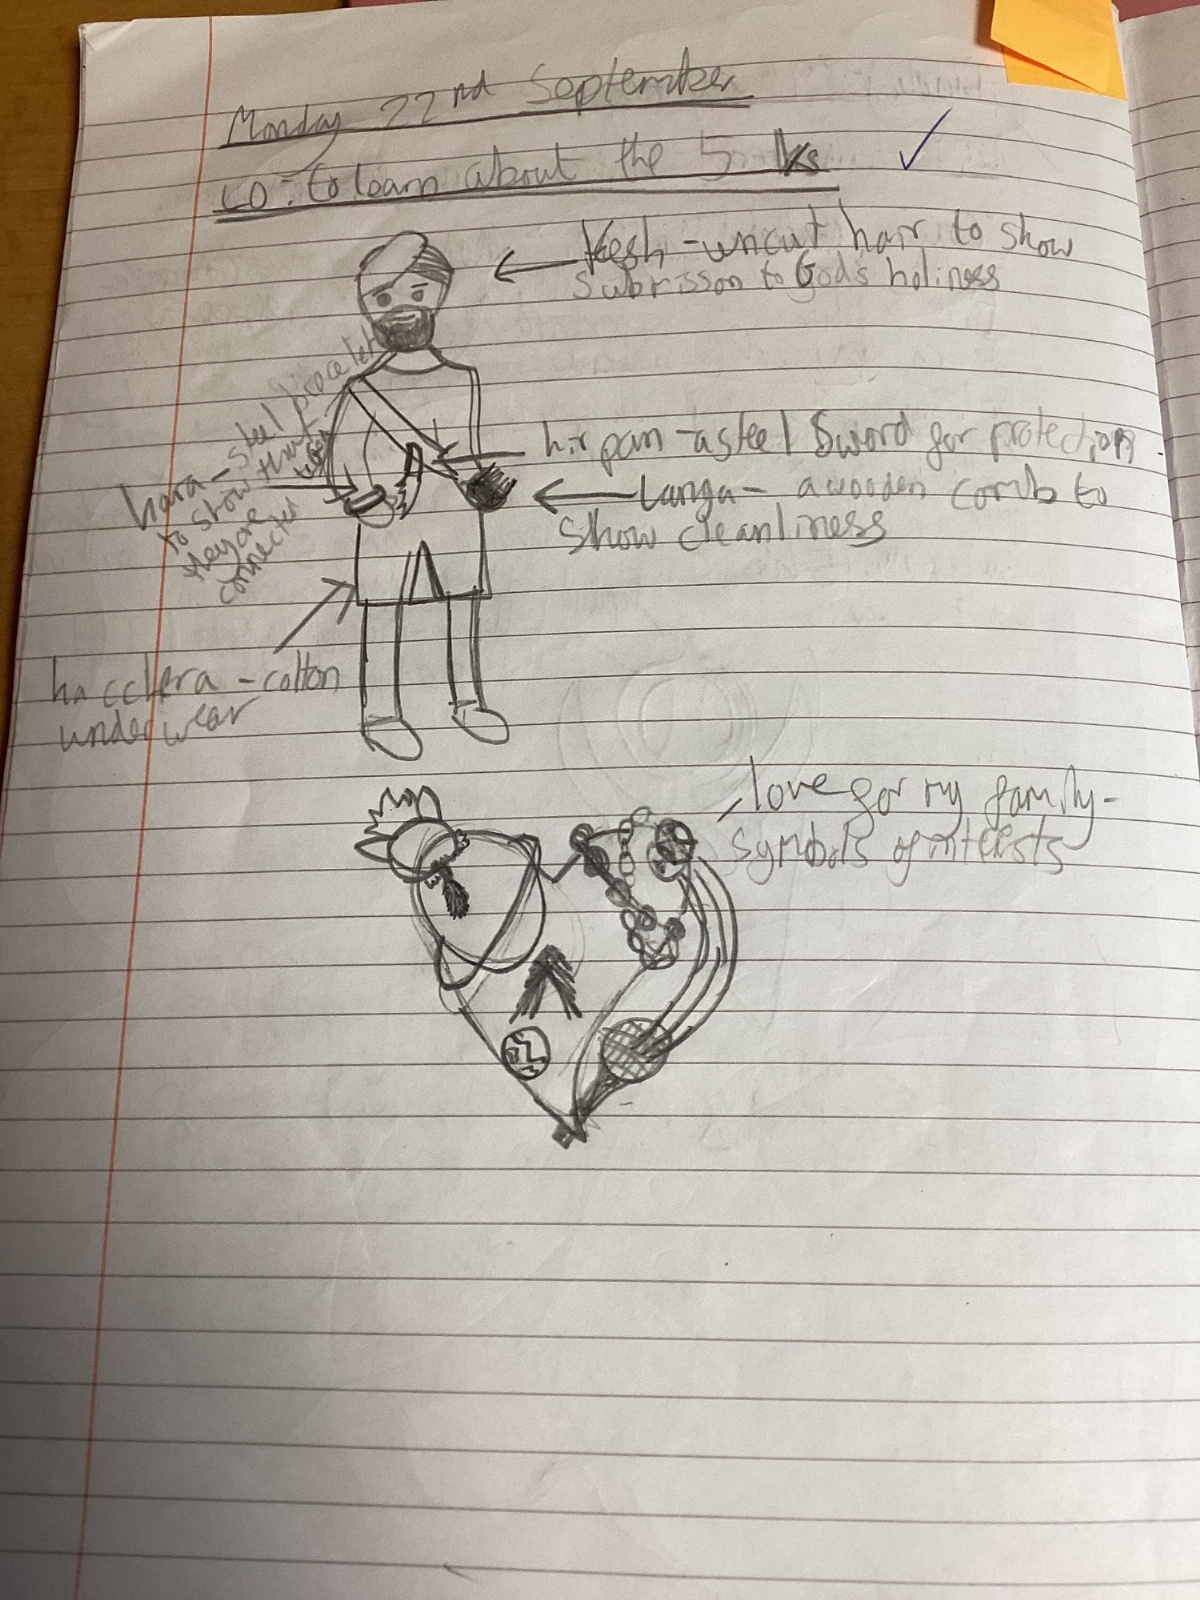 Monday 22nd September
LO: to learn about the 5 Ks
Kesh - uncut hair to show
Submisson to Gods holiness
hara - steel bracelet
to show that
they are
connected
hir pan - a steel Sword for protection
kanga - a wooden comb to
Show cleanliness
hacchera - cotton
underwear
love for my family -
symbols of interests